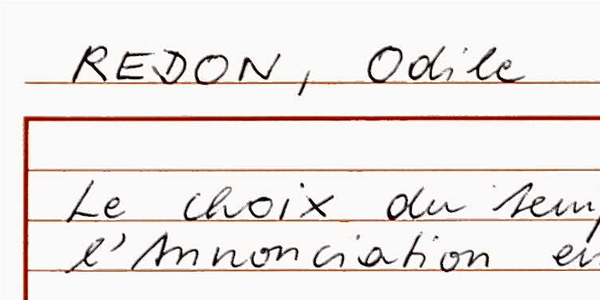 REDON, Odile
Le choix du
l'Annonciation